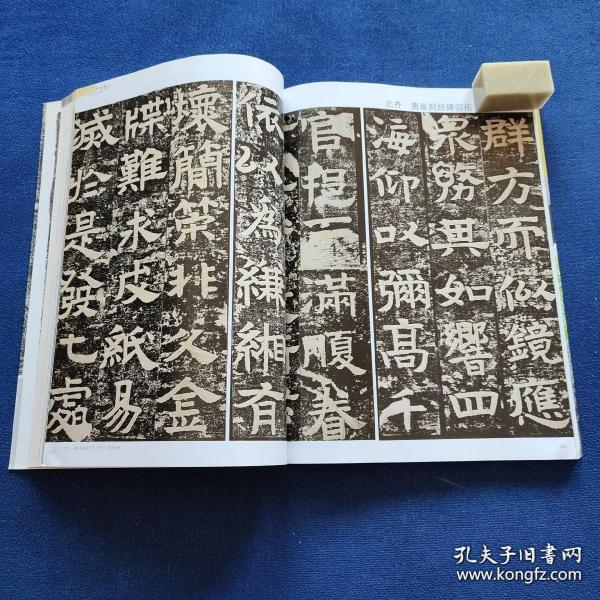 北齐 唐邕刻经碑旧拓
群方而似鏡應
眾務其如響四
海仰以彌高千
官挹滿腹眷
依以為縑緗有
壞簡策非久金
牒難求皮紙易
滅於是發七處
孔夫子旧书网
www.kongfz.com